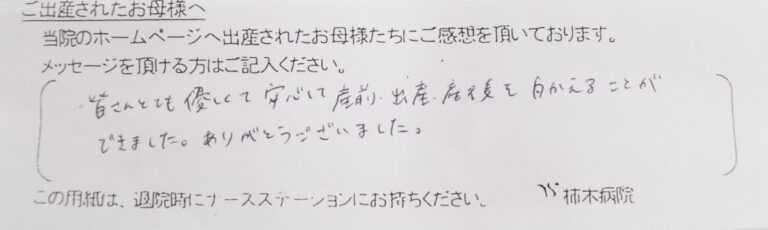 ご出産されたお母様へ
当院のホームページへ出産されたお母様たちにご感想を頂いております。
メッセージを頂ける方はご記入ください。
皆さんとても優しくて安心して産前、出産、産後を向かえることが
できました。ありがとうございました。
この用紙は、退院時にナースステーションにお持ちください。 柿木病院